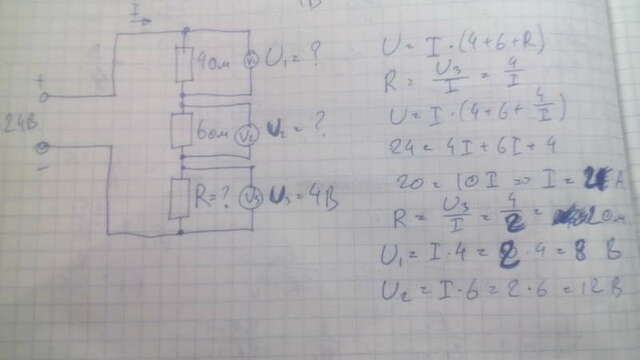 I
+
24В
-
4ом
V1
U₁=?
6ом
V2
U₂=?
R=?
V3
U₃=4В
U=I·(4+6+R)
R=U₃/I=4/I
U=I·(4+6+4/I)
24=4I+6I+4
20=10I => I=2A
R=U₃/I=4/2=2ом
U₁=I·4=2·4=8 В
U₂=I·6=2·6=12В